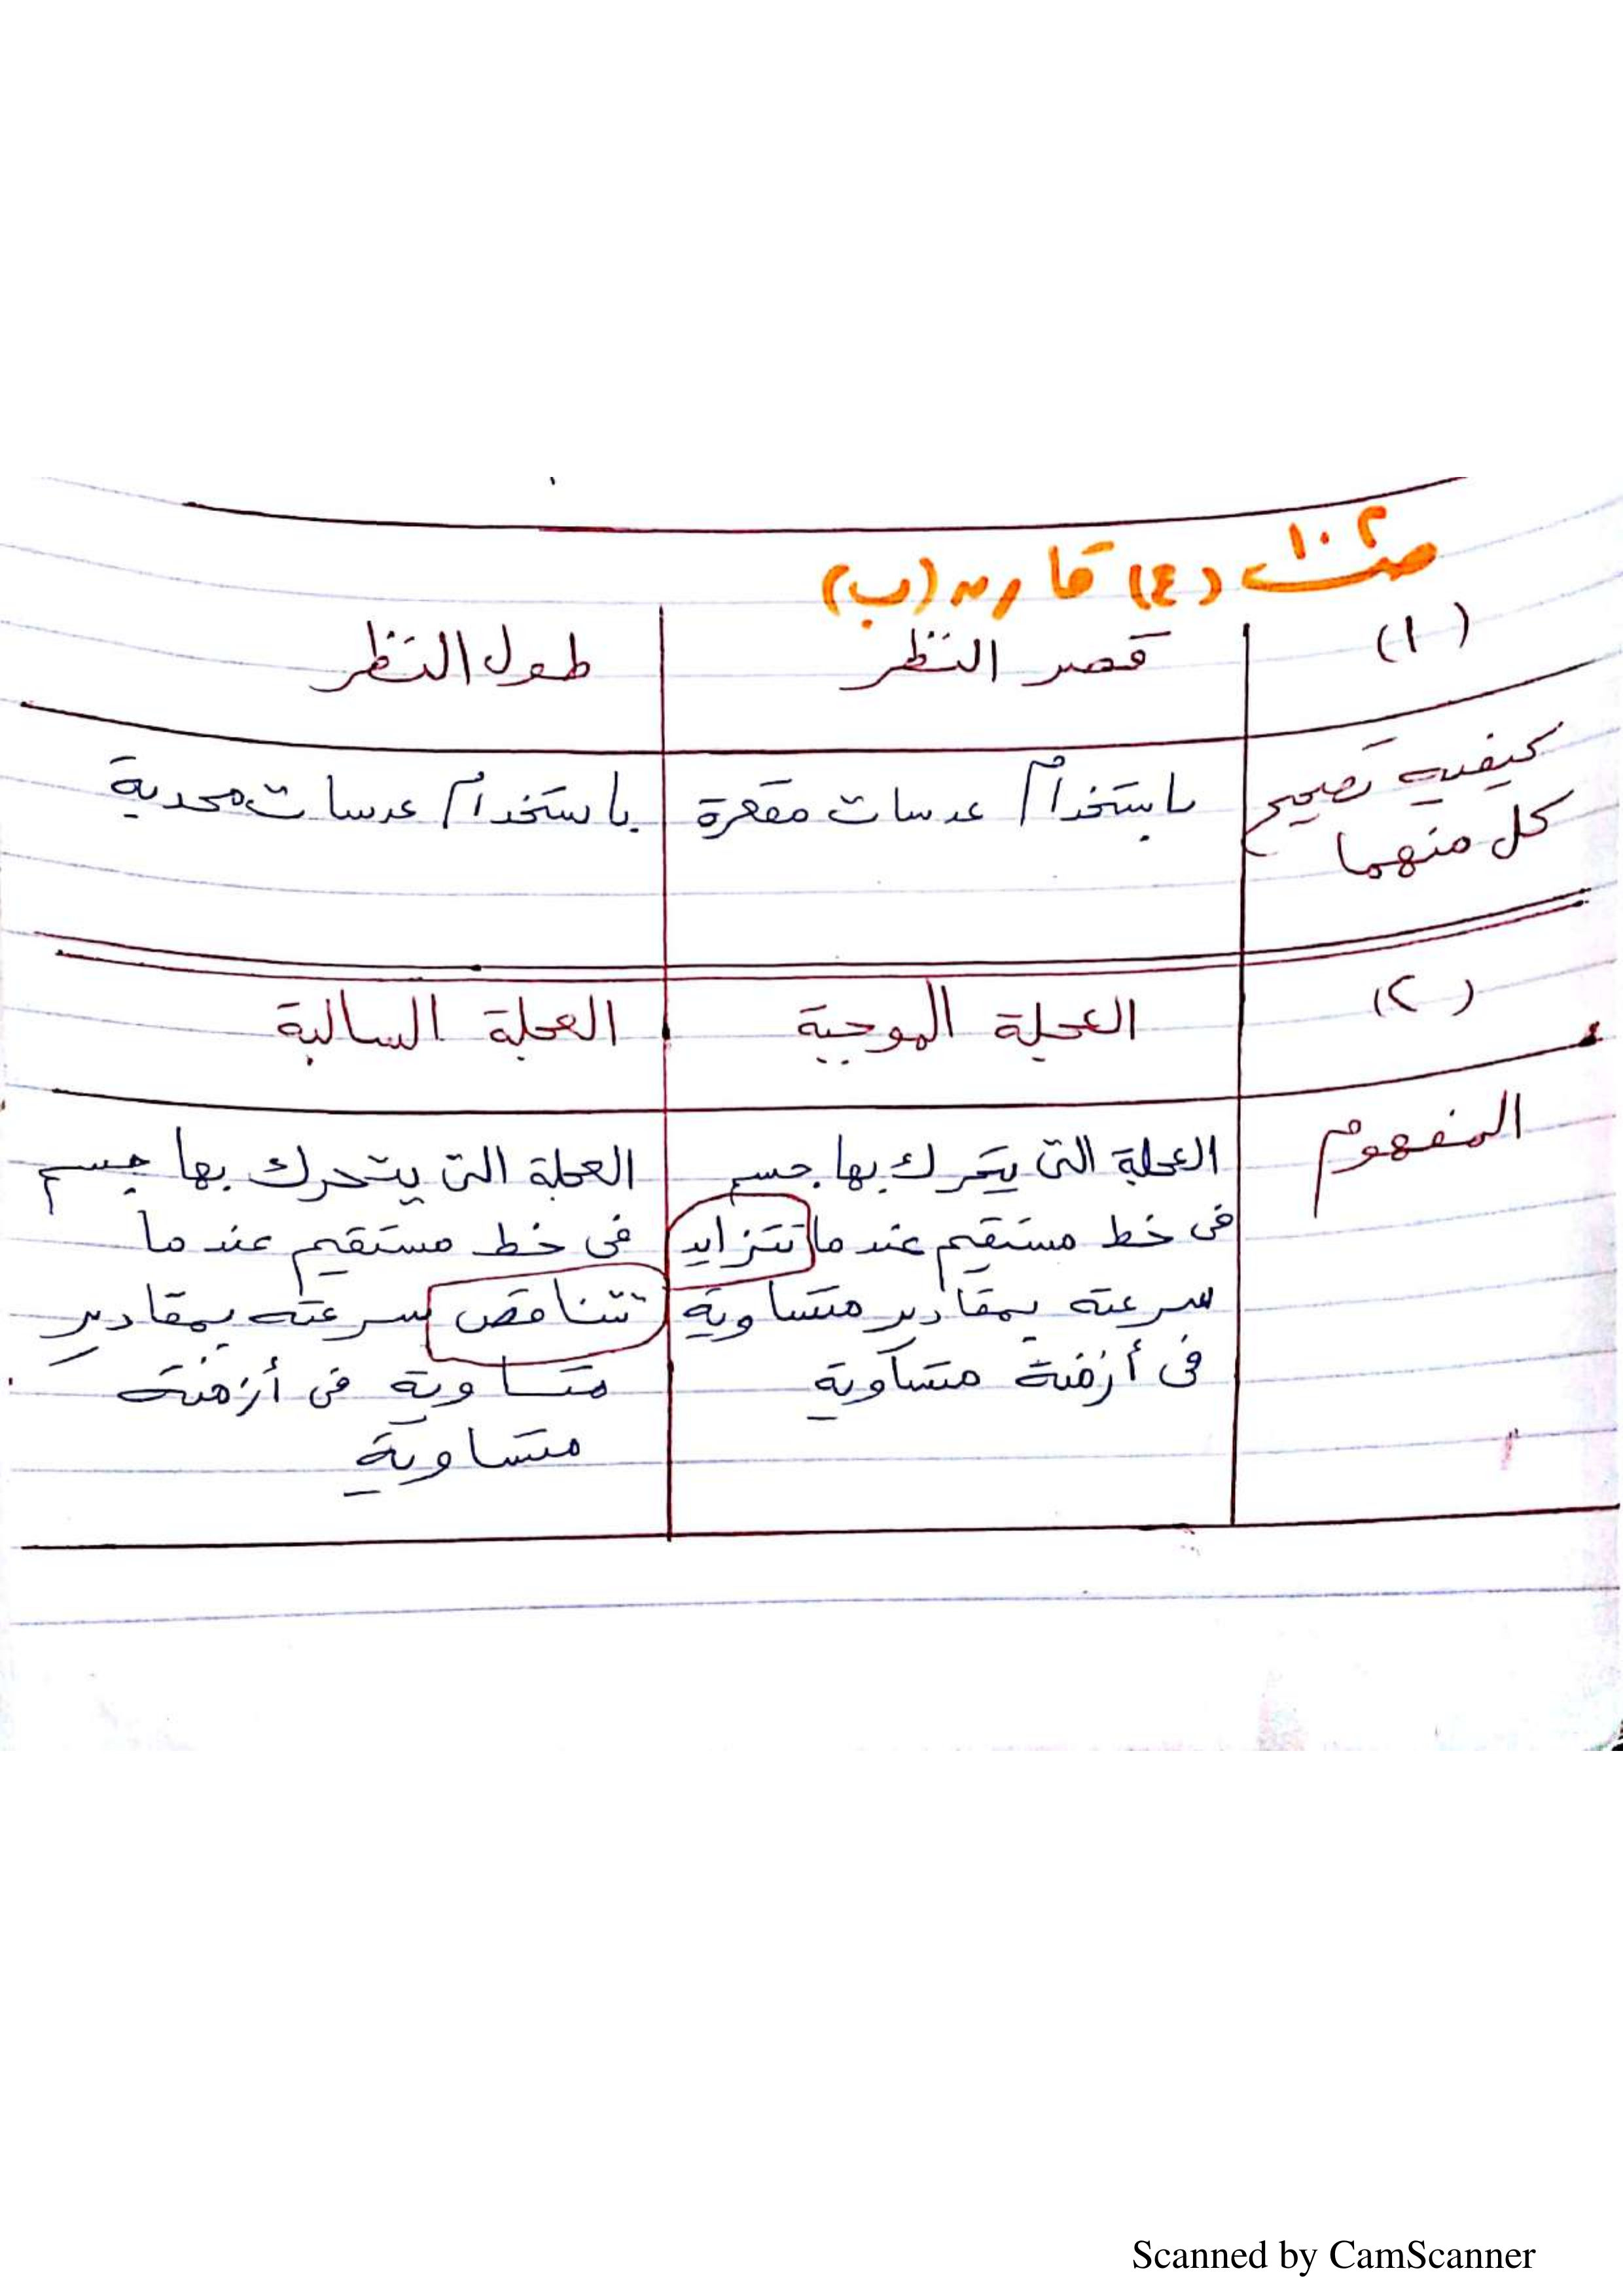 صـ ١٠٢ (٤) قارن (ب)
(١) قصر النظر طول النظر
كيفية تصحيح كل منهما باستخدام عدسات مقعرة باستخدام عدسات محدبة
(٢) العجلة الموجبة العجلة السالبة
المفهوم
العجلة التى يتحرك بها جسم
فى خط مستقيم عندما تتزايد
سرعته بمقادير متساوية
فى أزمنة متساوية
العجلة التى يتحرك بها جسم
فى خط مستقيم عندما
تتناقص سرعته بمقادير
متساوية فى أزمنة
متساوية
Scanned by CamScanner